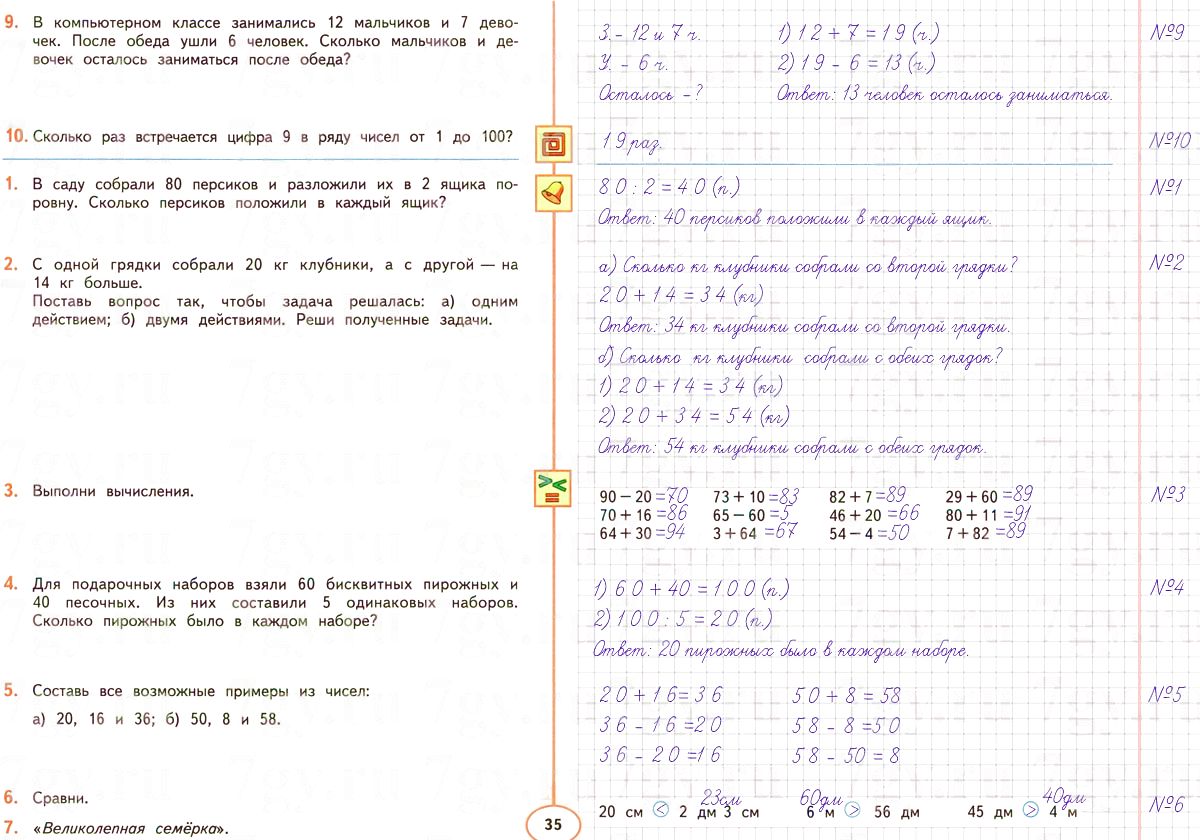 9. В компьютерном классе занимались 12 мальчиков и 7 дево-
чек. После обеда ушли 6 человек. Сколько мальчиков и де-
вочек осталось заниматься после обеда?
З. - 12 и 7 ч.
У. - 6 ч.
Осталось - ?
1) 12 + 7 = 19 (ч.)
2) 19 - 6 = 13 (ч.)
Ответ: 13 человек осталось заниматься.
№9
10. Сколько раз встречается цифра 9 в ряду чисел от 1 до 100?
19 раз.
№10
1. В саду собрали 80 персиков и разложили их в 2 ящика по-
ровну. Сколько персиков положили в каждый ящик?
80 : 2 = 40 (п.)
Ответ: 40 персиков положили в каждый ящик.
№1
2. С одной грядки собрали 20 кг клубники, а с другой — на
14 кг больше.
Поставь вопрос так, чтобы задача решалась: а) одним
действием; б) двумя действиями. Реши полученные задачи.
а) Сколько кг клубники собрали со второй грядки?
20 + 14 = 34 (кг)
Ответ: 34 кг клубники собрали со второй грядки.
б) Сколько кг клубники собрали с обеих грядок?
1) 20 + 14 = 34 (кг)
2) 20 + 34 = 54 (кг)
Ответ: 54 кг клубники собрали с обеих грядок.
№2
3. Выполни вычисления.
90 − 20 =70 73 + 10 =83 82 + 7 =89 29 + 60 =89
70 + 16 =86 65 − 60 =5 46 + 20 =66 80 + 11 =91
64 + 30 =94 3 + 64 =67 54 − 4 =50 7 + 82 =89
№3
4. Для подарочных наборов взяли 60 бисквитных пирожных и
40 песочных. Из них составили 5 одинаковых наборов.
Сколько пирожных было в каждом наборе?
1) 60 + 40 = 100 (п.)
2) 100 : 5 = 20 (п.)
Ответ: 20 пирожных было в каждом наборе.
№4
5. Составь все возможные примеры из чисел:
а) 20, 16 и 36; б) 50, 8 и 58.
20 + 16 = 36 50 + 8 = 58
36 - 16 = 20 58 - 8 = 50
36 - 20 = 16 58 - 50 = 8
№5
6. Сравни.
23см 60дм 40дм
20 см < 2 дм 3 см 6 м > 56 дм 45 дм > 4 м
№6
7. «Великолепная семёрка».
35
7gv.ru